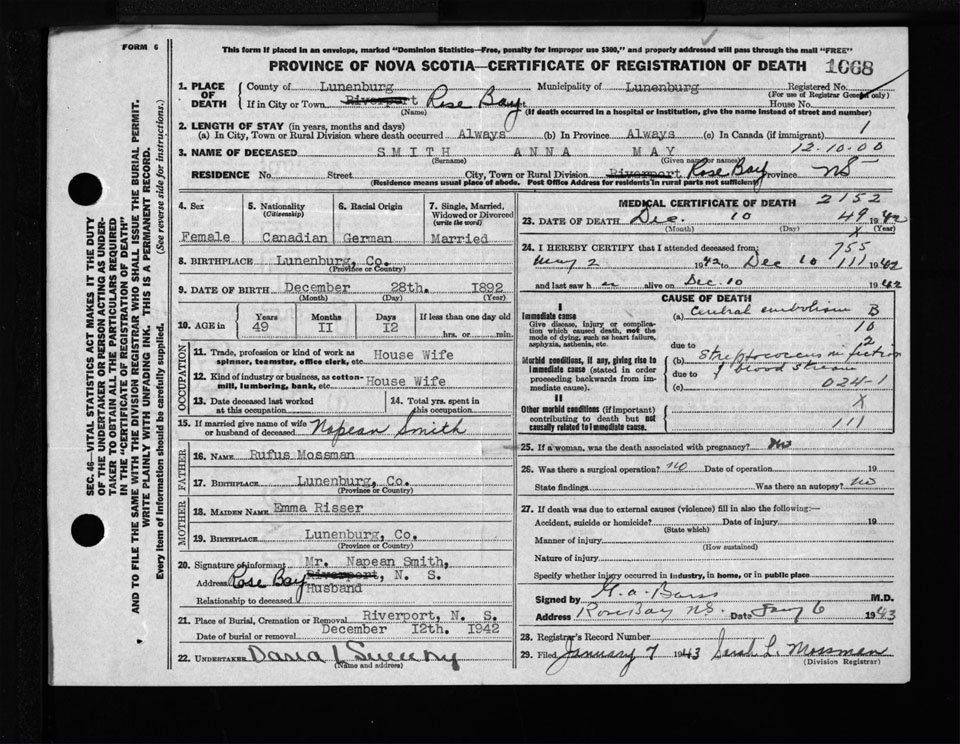 FORM 6
This form if placed in an envelope, marked "Dominion Statistics—Free, penalty for improper use $300," and properly addressed will pass through the mail "FREE"
PROVINCE OF NOVA SCOTIA—CERTIFICATE OF REGISTRATION OF DEATH 1068
SEC. 46—VITAL STATISTICS ACT MAKES IT THE DUTY
OF THE UNDERTAKER OR PERSON ACTING AS UNDER-
TAKER TO OBTAIN ALL THE PARTICULARS REQUIRED
IN THE "CERTIFICATE OF REGISTRATION OF DEATH"
AND TO FILE THE SAME WITH THE DIVISION REGISTRAR WHO SHALL ISSUE THE BURIAL PERMIT.
WRITE PLAINLY WITH UNFADING INK. THIS IS A PERMANENT RECORD.
Every item of Information should be carefully supplied. (See reverse side for instructions.)
1. PLACE OF DEATH County of Lunenburg Municipality of Lunenburg Registered No.
(For use of Registrar General only)
If in City or Town Riverport Rose Bay House No.
(Name) (If death occurred in a hospital or institution, give the name instead of street and number)
2. LENGTH OF STAY (in years, months and days)
(a) In City, Town or Rural Division where death occurred Always (b) In Province Always (c) In Canada (if immigrant) 1
3. NAME OF DECEASED SMITH ANNA MAY 12-10-00
(Surname) (Given name or names)
RESIDENCE No. Street City, Town or Rural Division Riverport Rose Bay Province NS
(Residence means usual place of abode. Post Office Address for residents in rural parts not sufficient)
4. Sex 5. Nationality (Citizenship) 6. Racial Origin 7. Single, Married, Widowed or Divorced (write the word)
Female Canadian German Married
8. BIRTHPLACE Lunenburg, Co.
(Province or Country)
9. DATE OF BIRTH December 28th. 1892
(Month) (Day) (Year)
10. AGE in Years Months Days If less than one day old
49 II I2 hrs. or min.
OCCUPATION
11. Trade, profession or kind of work as spinner, teamster, office clerk, etc. House Wife
12. Kind of industry or business, as cotton-mill, lumbering, bank, etc. House Wife
13. Date deceased last worked at this occupation 14. Total yrs. spent in this occupation
15. If married give name of wife or husband of deceased Napean Smith
FATHER
16. NAME Rufus Mossman
17. BIRTHPLACE Lunenburg, Co.
(Province or Country)
MOTHER
18. MAIDEN NAME Emma Risser
19. BIRTHPLACE Lunenburg, Co.
(Province or Country)
20. Signature of informant Mr. Napean Smith,
Address Rose Bay Riverport, N. S.
Relationship to deceased Husband
21. Place of Burial, Cremation or Removal Riverport, N. S.
Date of burial or removal December 12th. 1942
22. UNDERTAKER
(Name and address)
MEDICAL CERTIFICATE OF DEATH 2152
23. DATE OF DEATH Dec. 10 49 1942
(Month) (Day) X (Year)
24. I HEREBY CERTIFY that I attended deceased from: 755
May 2 1942 to Dec 10 111 1942
and last saw h er alive on Dec. 10 1942
CAUSE OF DEATH
I
Immediate cause
Give disease, injury or complication which caused death, not the mode of dying, such as heart failure, asphyxia, asthenia, etc.
(a) embolism B
10
due to 12
Morbid conditions, if any, giving rise to immediate cause (stated in order proceeding backwards from immediate cause).
(b) Streptococcus infection
of blood stream
(c) 024-1
II
Other morbid conditions (if important) contributing to death but not causally related to immediate cause.
X
111
25. If a woman, was the death associated with pregnancy? No
26. Was there a surgical operation? no Date of operation 19
State findings Was there an autopsy? no
27. If death was due to external causes (violence) fill in also the following:—
Accident, suicide or homicide? Date of injury 19
(State which)
Manner of injury
(How sustained)
Nature of injury
Specify whether injury occurred in industry, in home, or in public place
Signed by M.D.
Address Rose Bay N.S. Date Jany 6 1943
28. Registrar's Record Number
29. Filed January 7 1943 Sarah L. Mossman
(Division Registrar)